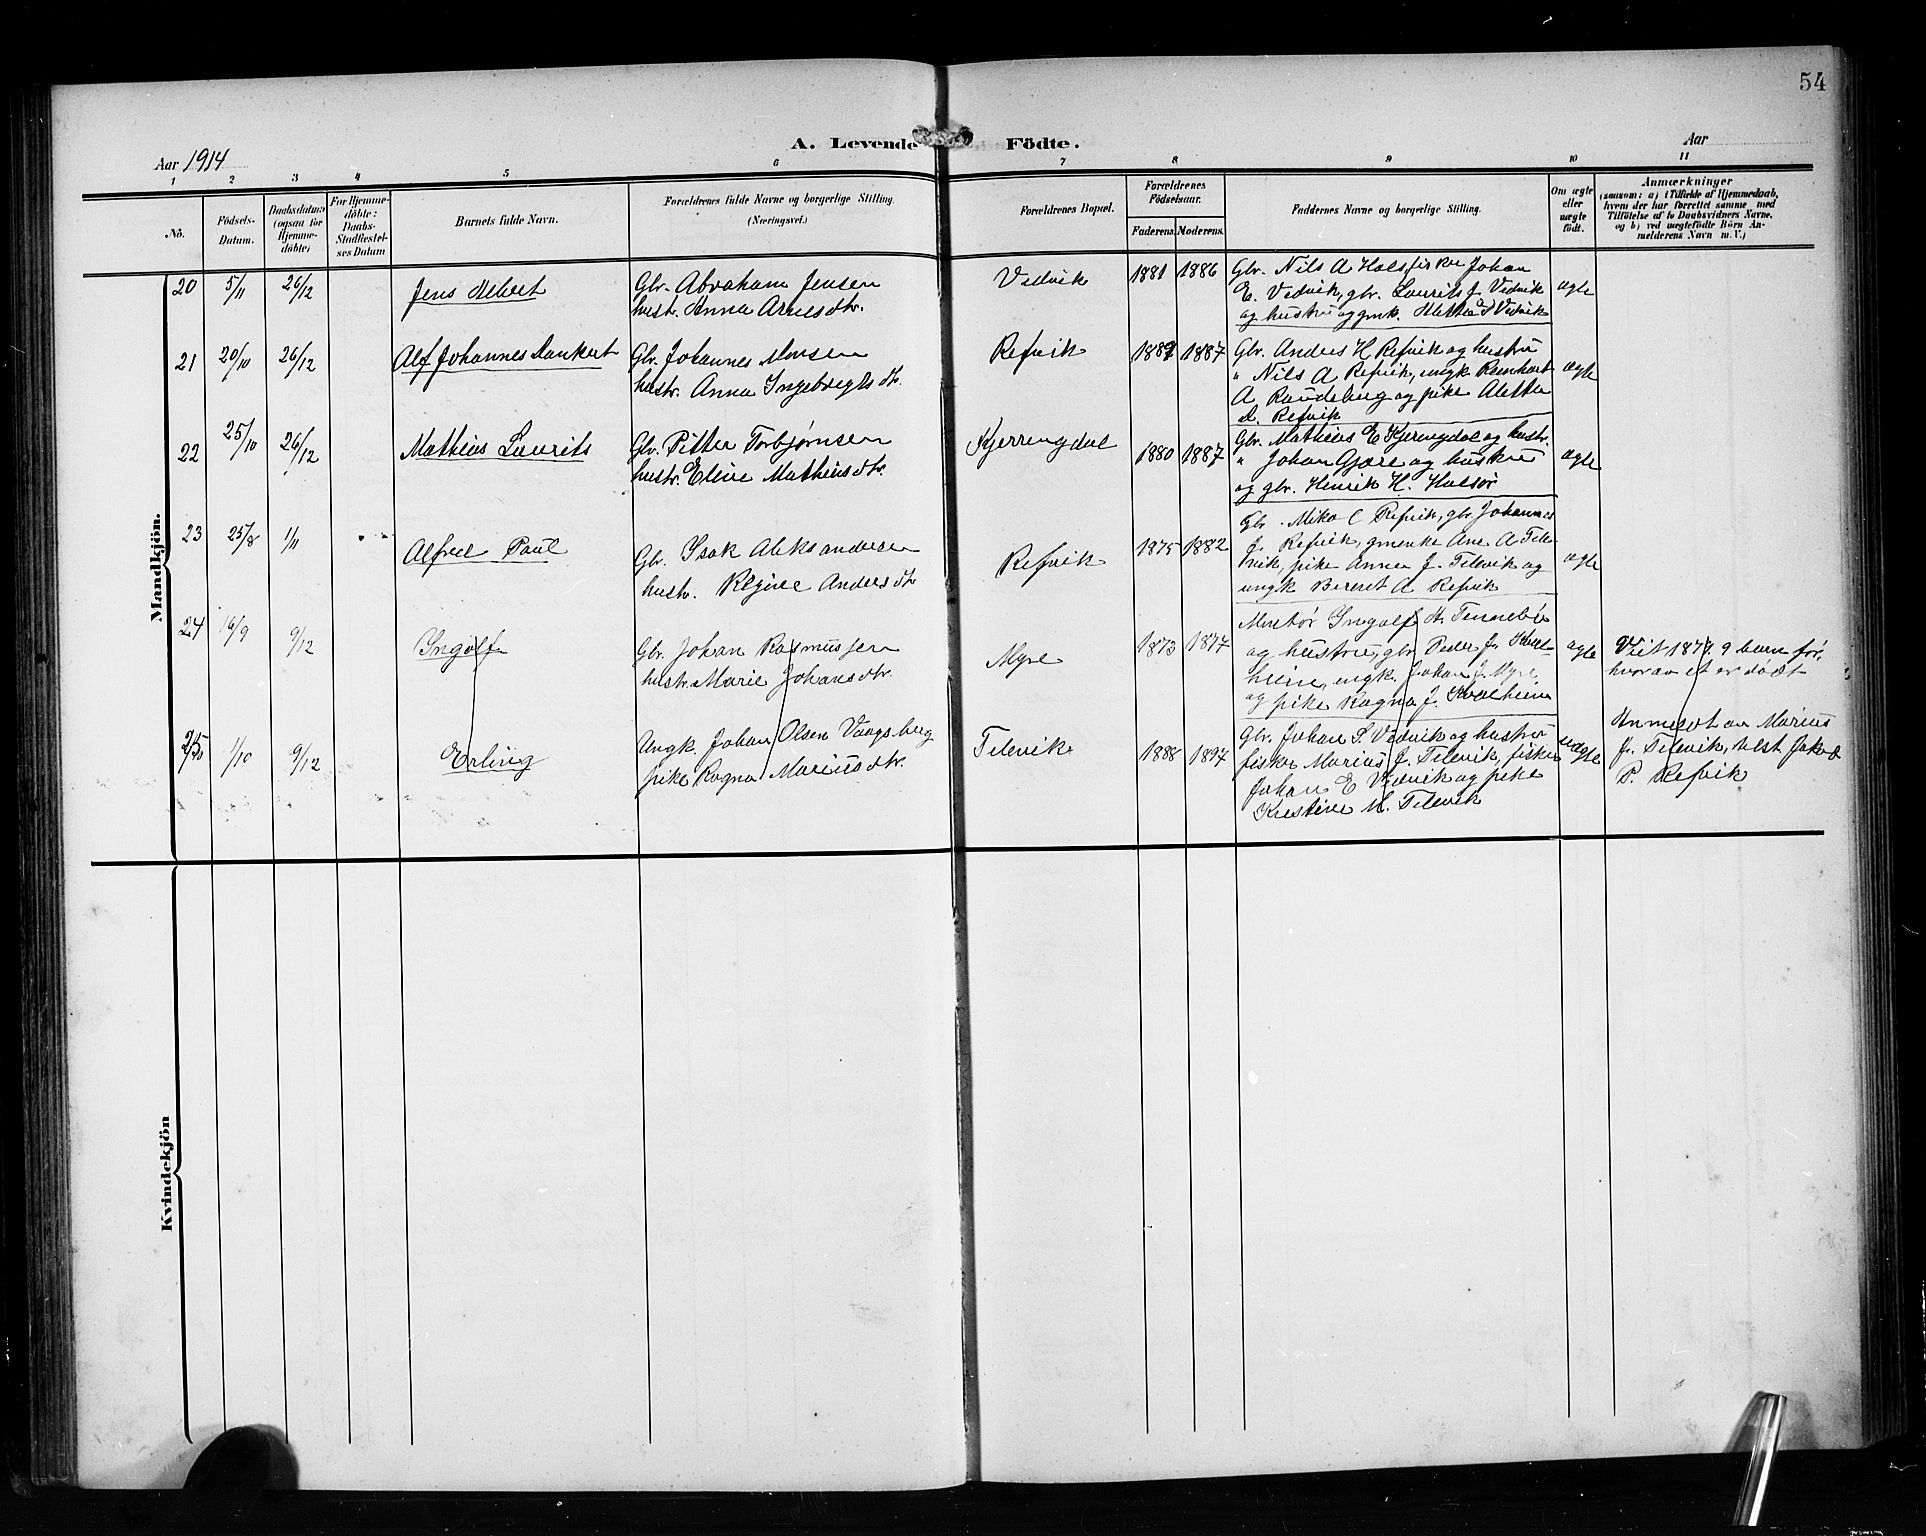 54
A. Levende Födte.
Aar 1914
Aar
1 2 3 4 5 6 7 8 9 10 11
No.
Födsels-
Datum.
Daabsdatum
(ogsaa for
Hjemme-
döbte)
For Hjemme-
döbte:
Daabs-
Stadfæstel-
ses Datum
Barnets fulde Navn.
Forældrenes fulde Navne og borgerlige Stilling.
(Næringsvei.)
Forældrenes Bopæl.
Forældrenes
Födselsaar.
Faderens. Moderens.
Faddernes Navne og borgerlige Stilling.
Om ægte
eller
uægte
födt.
Anmærkninger
(saasom: a) i Tilfælde af Hjemmedaab,
hvem der har forrettet samme, med
Tilföielse af to Daabsvidners Navne,
og b) ved uægtefödte Börn An-
melderens Navn m. V.)
Mandkjön.
20 5/11 26/12 Jens Albert
Gbr. Abraham Jensen
hustr. Anna Arnesdtr.
Vedvik 1881 1886
Gbr. Nils A Hals, fisker Johan
E. Vedvik, gbr. Laurits J. Vedvik
og hustru og gmk. Vedvik
ægte
21 20/10 26/12 Alf Johannes Dankert
Gbr. Johannes Monsen
hustr. Anna Ingebregtsdtr.
Refvik 1887
Gbr. Anders H Refvik og hustru
" Nils A Refvik, ungk Reinhart
A Raudeberg og pike Alettha
D. Refvik
ægte
22 25/10 26/12 Mathias Laurits
Gbr. Pitter Torbjørnsen
hustr. Eline Mathiasdtr.
Kjerringdal 1880 1887
Gbr. Mathias E Kjeringdal og hustr.
" Johan Gjære og hustru
og gbr. Henrik H. Halsør
ægte
23 25/8 1/11 Alfred Paul
Gbr. Isak Aleksandersen
hustr. Regine Andersdtr
Refvik 1875 1882
Gbr. Mikal C Refvik, gbr. Johannes
J. Refvik, gmenke Ane A Tele-
vik, pike Anna J. Televik og
ungk Berent A Refvik
ægte
24 16/9 9/12 Ingolf
Gbr. Johan Rasmussen
hustr. Marie Johansdtr.
Myre 1873 1877
Ingolf H. Tennebø
og hustru, gbr. Peder J. Kval-
heim, ungk. Johan J. Myre
og pike Ragna J. Kvalheim
ægte
Viet 1897. 9 barn før,
hvorav et er dødt
25 1/10 9/12 Erling
Ungk. Johan Olsen Vaagsberg
pike Ragna Mariusdtr.
Televik 1888 1897
Gbr. Johan S. Vedvik og hustru
fisker Marius J. Televik, fisker
Johan E Vedvik og pike
Kristine M. Televik
uægte
Anmeldt av Marius
J. Televik, attest Jakob
P. Refvik
Kvindekjön